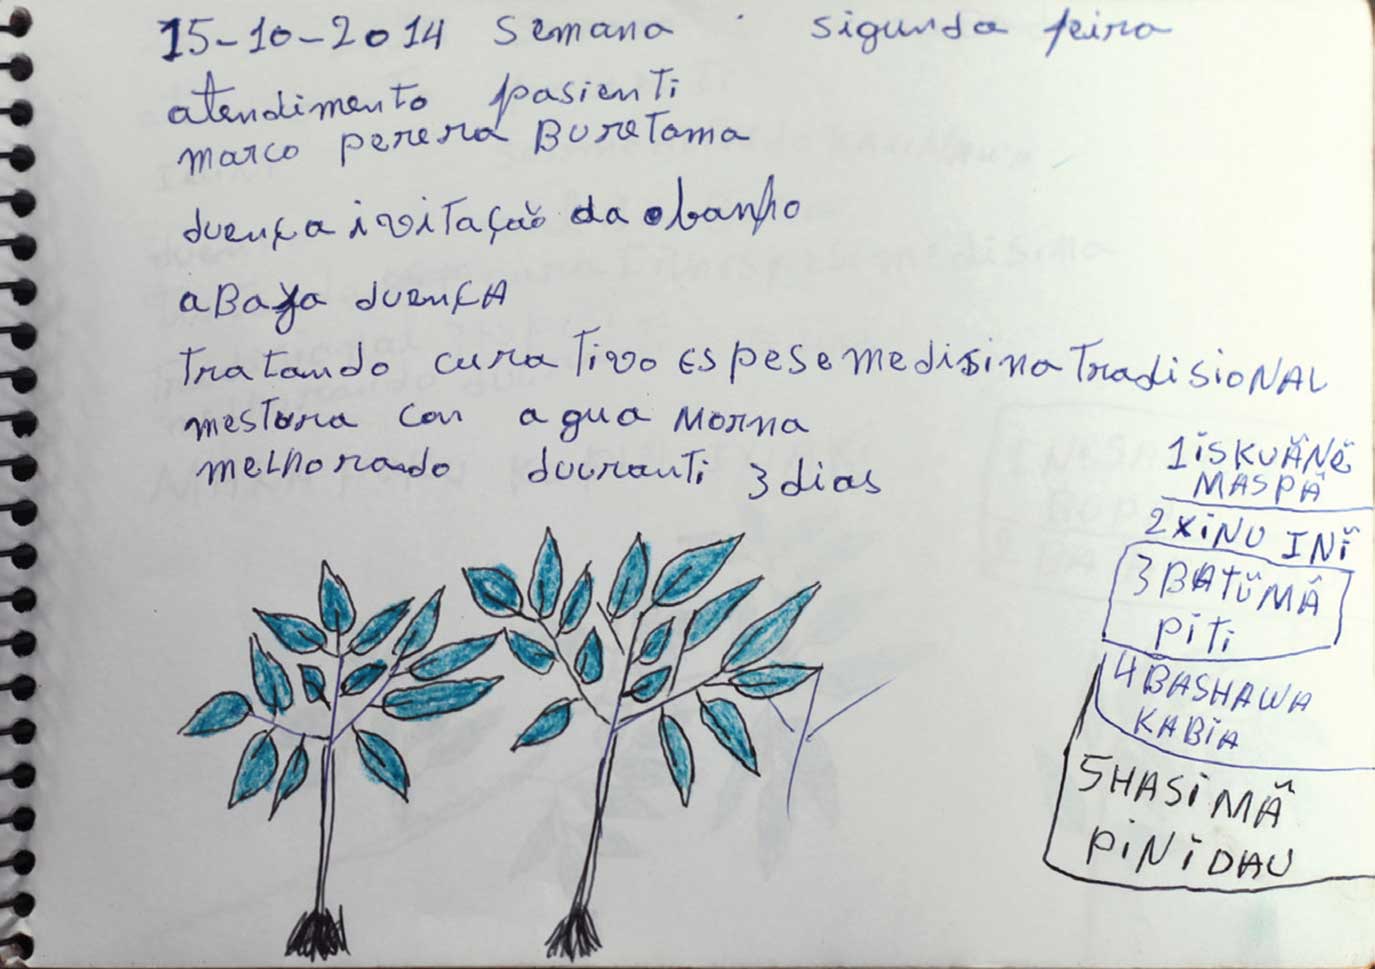 15-10-2014 semana sigunda feira
atendimento pasienti
marco perera Buretama
duença ivitação da obanho
aBaxa duençA
tratando curativo espese medisina tradisioNAL
mestura con agua morna
melhorado duuranti 3 dias
1 ISKUÃNẼ
MASPÃ
2 XINU INĨ
3 BATŨMÃ
PITI
4 BASHAWA
KABIA
5 HASIMÃ
PINIDAU